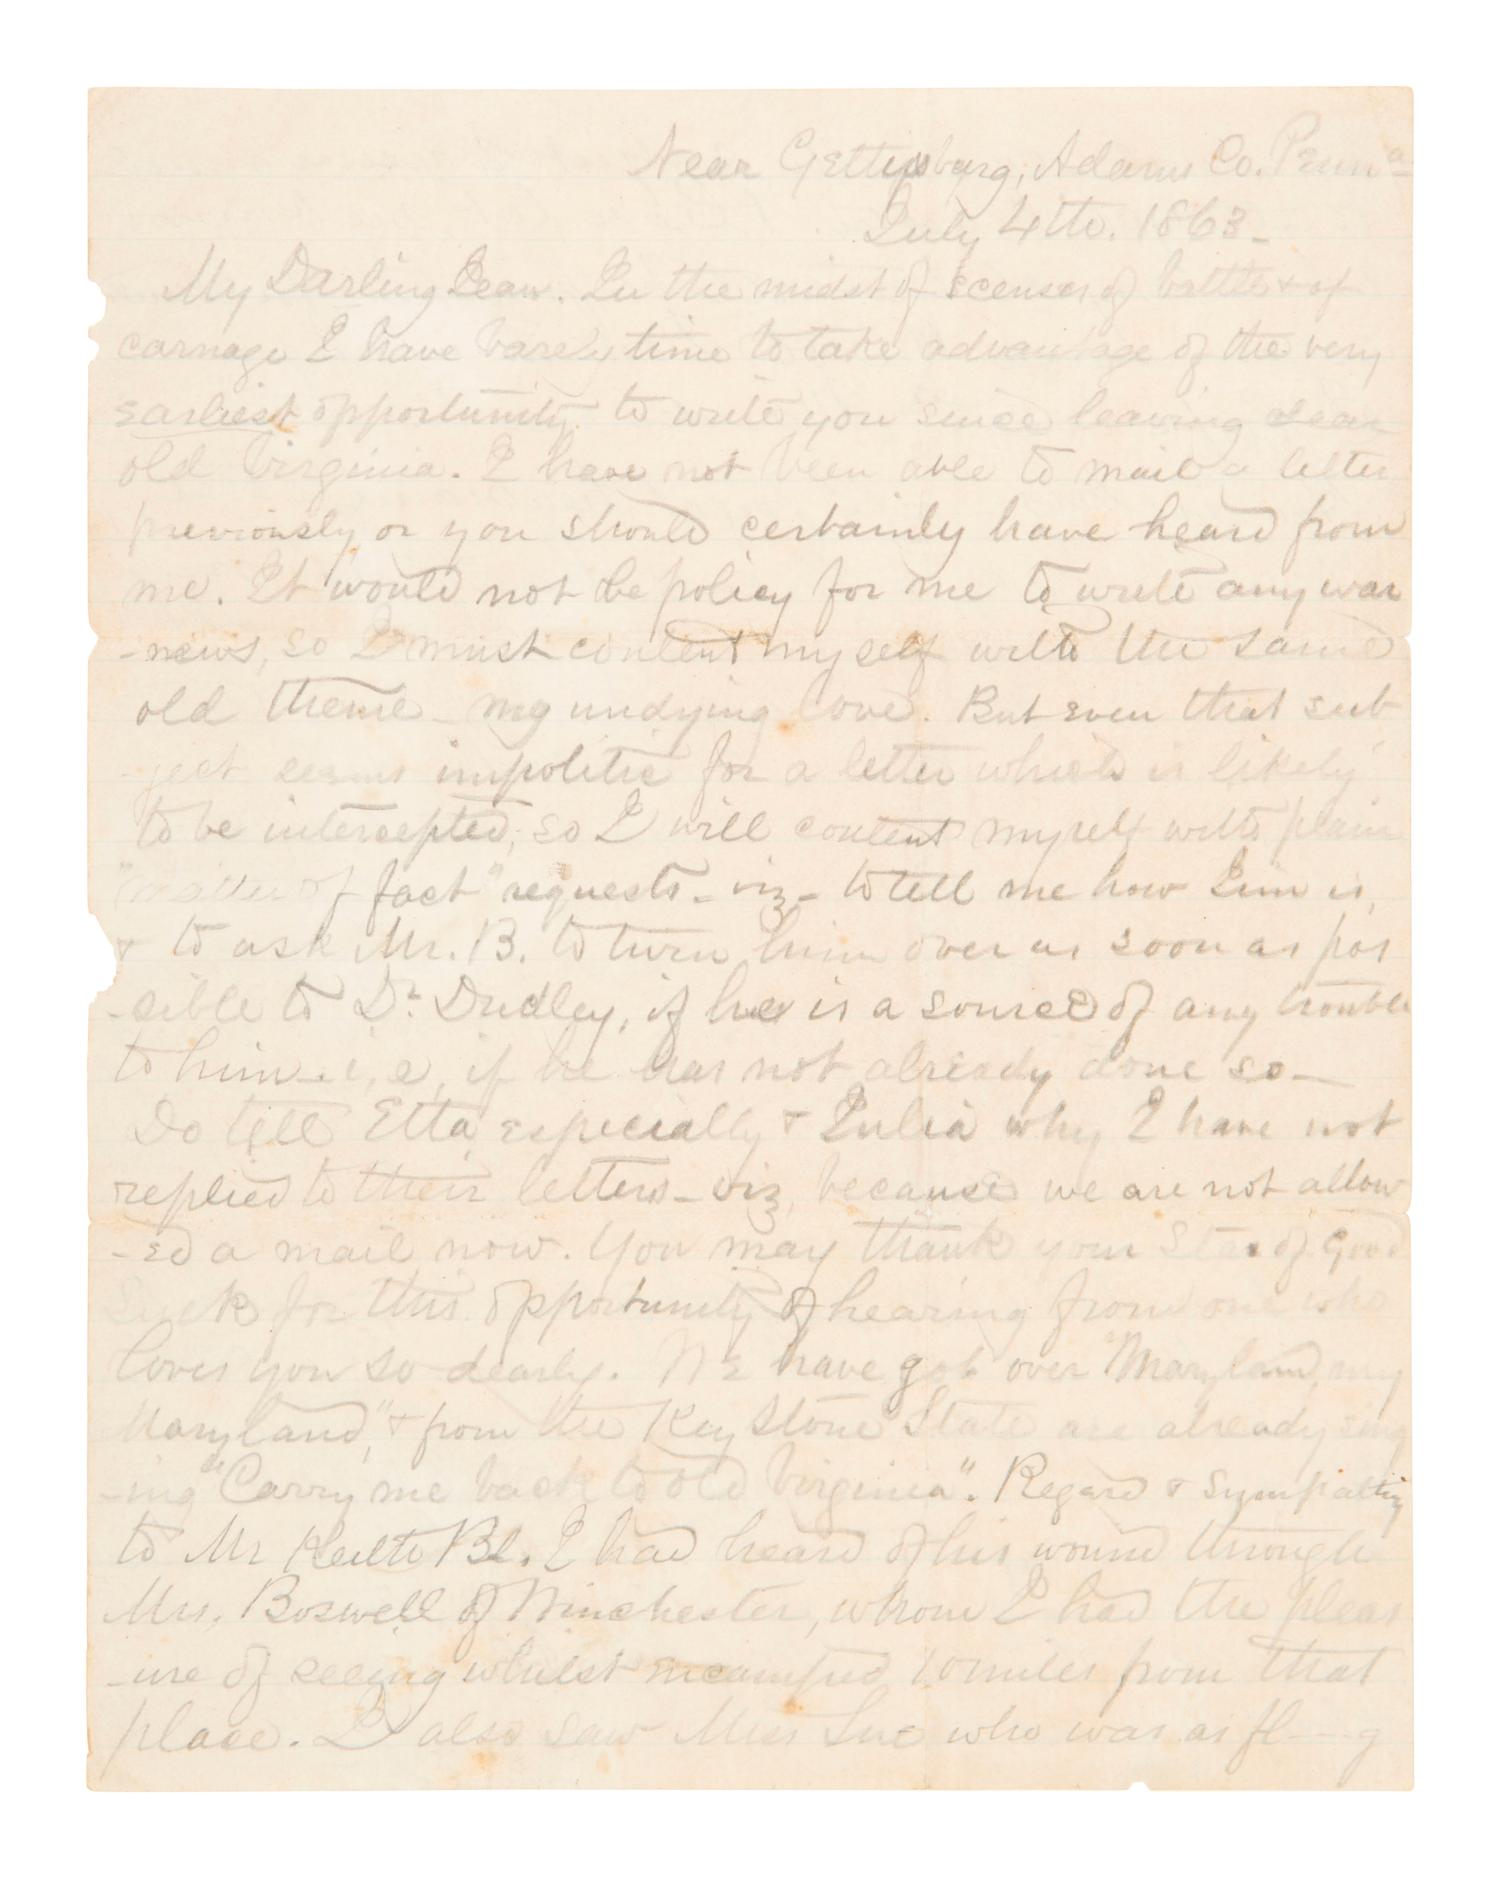 Near Gettysburg, Adams Co. Penna
July 4th. 1863_
My Darling Jean. In the midst of scenes of battle & of
carnage I have barely time to take advantage of the very
earliest opportunity to write you since leaving dear
old Virginia. I have not been able to mail a letter
previously or you should certainly have heard from
me. It would not be policy for me to write any war
-news, so I must content myself with the same
old theme_ my undying love. But even that sub
-ject seems impolitic for a letter which is likely
to be intercepted, so I will content myself with plain
"matter of fact" requests_ viz_ to tell me how Jim is,
& to ask Mr. B. to turn him over as soon as pos
-sible to Dr. Dudley, if he is a source of any trouble
to him_ i, e, if he has not already done so_
Do tell Etta especially & Julia why I have not
replied to their letters_ viz, because we are not allow
-ed a mail now. You may thank your Star of good
luck for this opportunity of hearing from one who
loves you so dearly. We have got over "Maryland, my
Maryland," & from the Key Stone State are already sing
-ing "Carry me back to old Virginia". Regard & sympathy
to Mr Keith Bl. I had heard of his wound through
Mrs. Boswell of Winchester, whom I had the pleas
-ure of seeing whilst encamped 10 miles from that
place. I also saw Miss Sue who was as fl---g